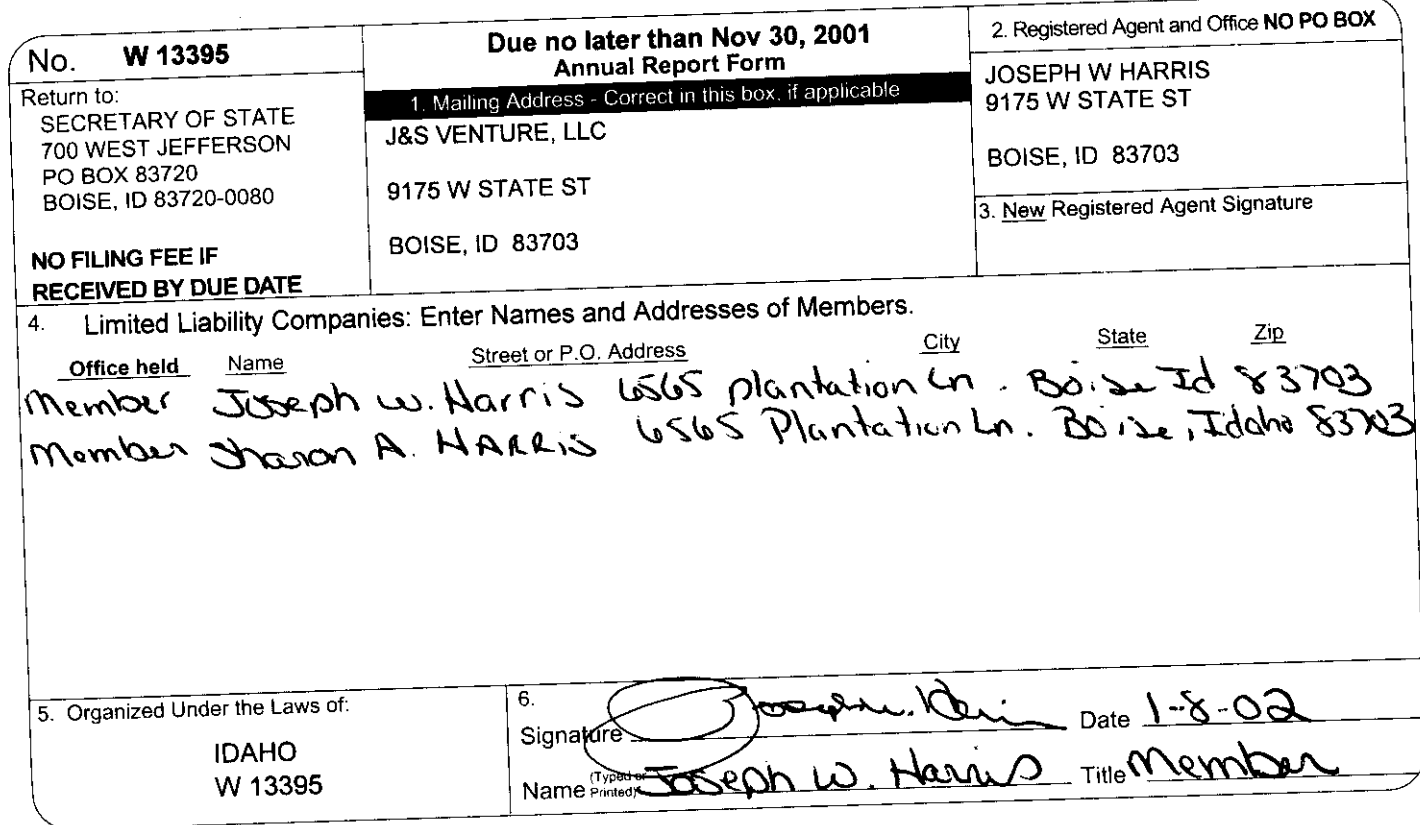 No. W 13395
Return to:
SECRETARY OF STATE
700 WEST JEFFERSON
PO BOX 83720
BOISE, ID 83720-0080
NO FILING FEE IF
RECEIVED BY DUE DATE
Due no later than Nov 30, 2001
Annual Report Form
1. Mailing Address - Correct in this box, if applicable
J&S VENTURE, LLC
9175 W STATE ST
BOISE, ID 83703
2. Registered Agent and Office NO PO BOX
JOSEPH W HARRIS
9175 W STATE ST
BOISE, ID 83703
3. New Registered Agent Signature
4. Limited Liability Companies: Enter Names and Addresses of Members.
Office held Name Street or P.O. Address City State Zip
Member Joseph W. Harris 6565 plantation Ln. Boise Id 83703
Member Sharon A. HARRIS 6565 Plantation Ln. Boise, Idaho 83703
5. Organized Under the Laws of:
IDAHO
W 13395
6.
Signature Joseph W. Harris Date 1-8-02
Name (Typed or Printed) Joseph W. Harris Title Member